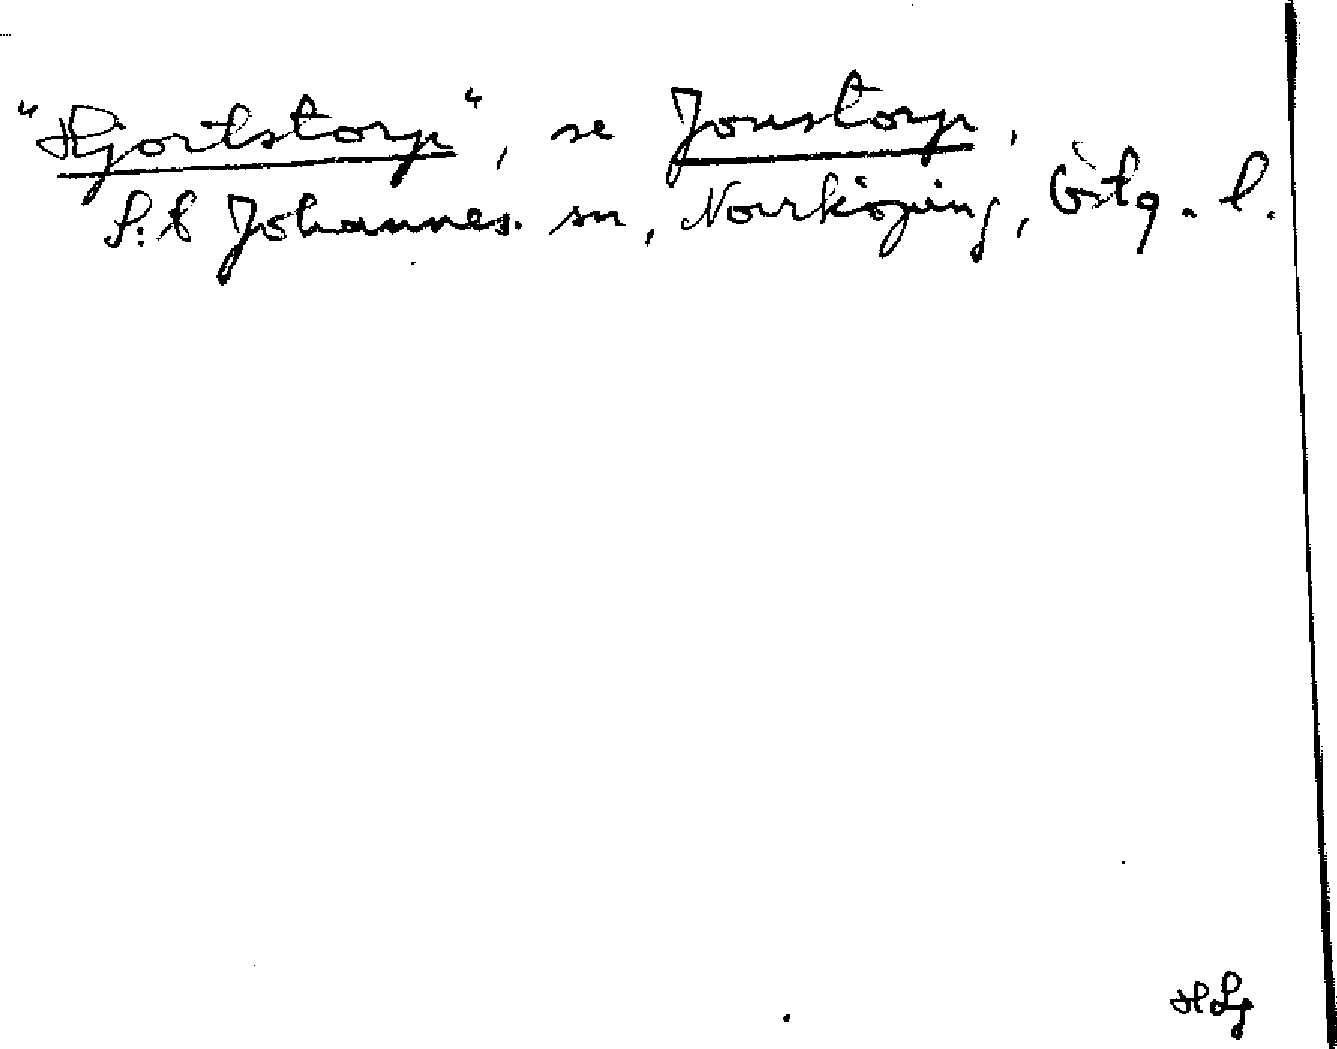 "Hjortstorp", se Jonstorp,
S:t Johannes. sn, Norrköping, Östg. l.
HLg